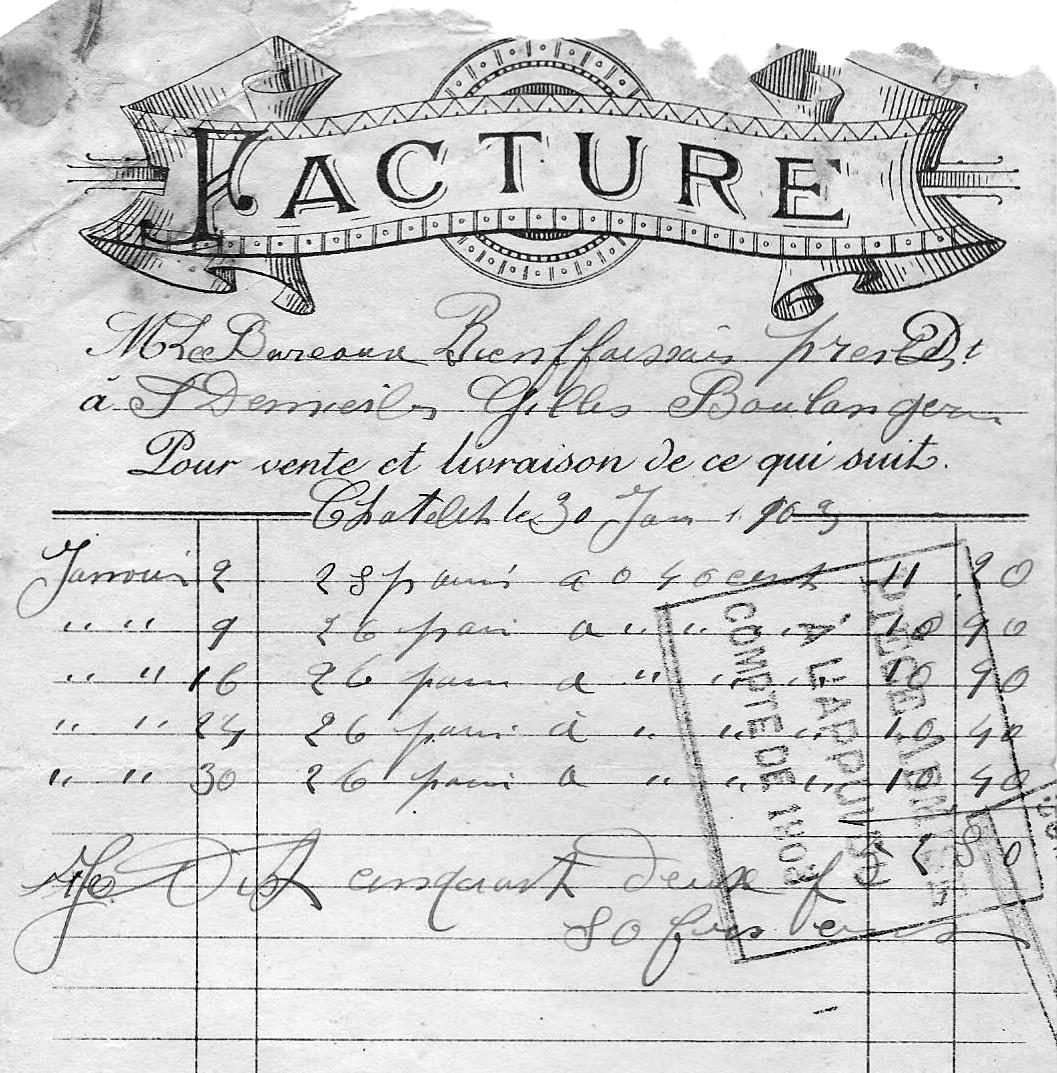 FACTURE
Mr Le Bureaux Bienffaissais pres Dt
à Gilles Boulanger
Pour vente et livraison de ce qui suit.
Chatelet le 30 Janv 1903
Janvier 2 28 pains a 0 40 cent 11 20
" " 9 26 pain a " " " " 10 90
" " 16 26 pain a " " " 10 90
" " 24 26 pain à " " " 10 40
" " 30 26 pain a " " " 10 40
52 80
Dist cinquant deux f
80
À L'APPUI DU
COMPTE DE 1903